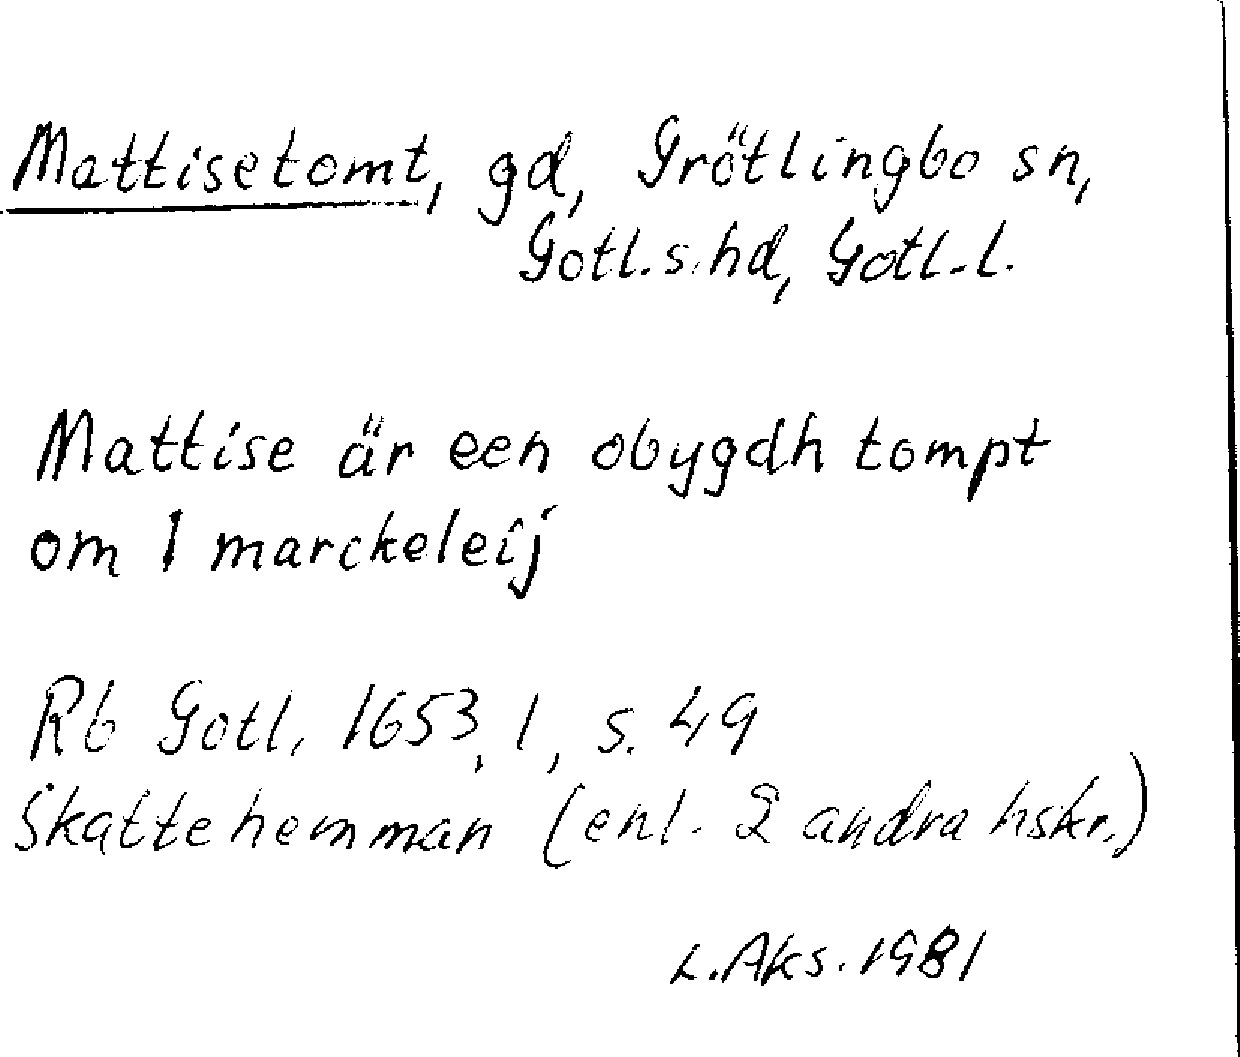 Mattisetomt, gd, Grötlingbo sn,
Gotl. s. hd, Gotl. l.
Mattise är een obygdh tompt
om 1 marckeleij
Rb Gotl. 1653, 1, s. 49
Skattehemman (enl. 2 andra hskr.)
L. Aks. 1981